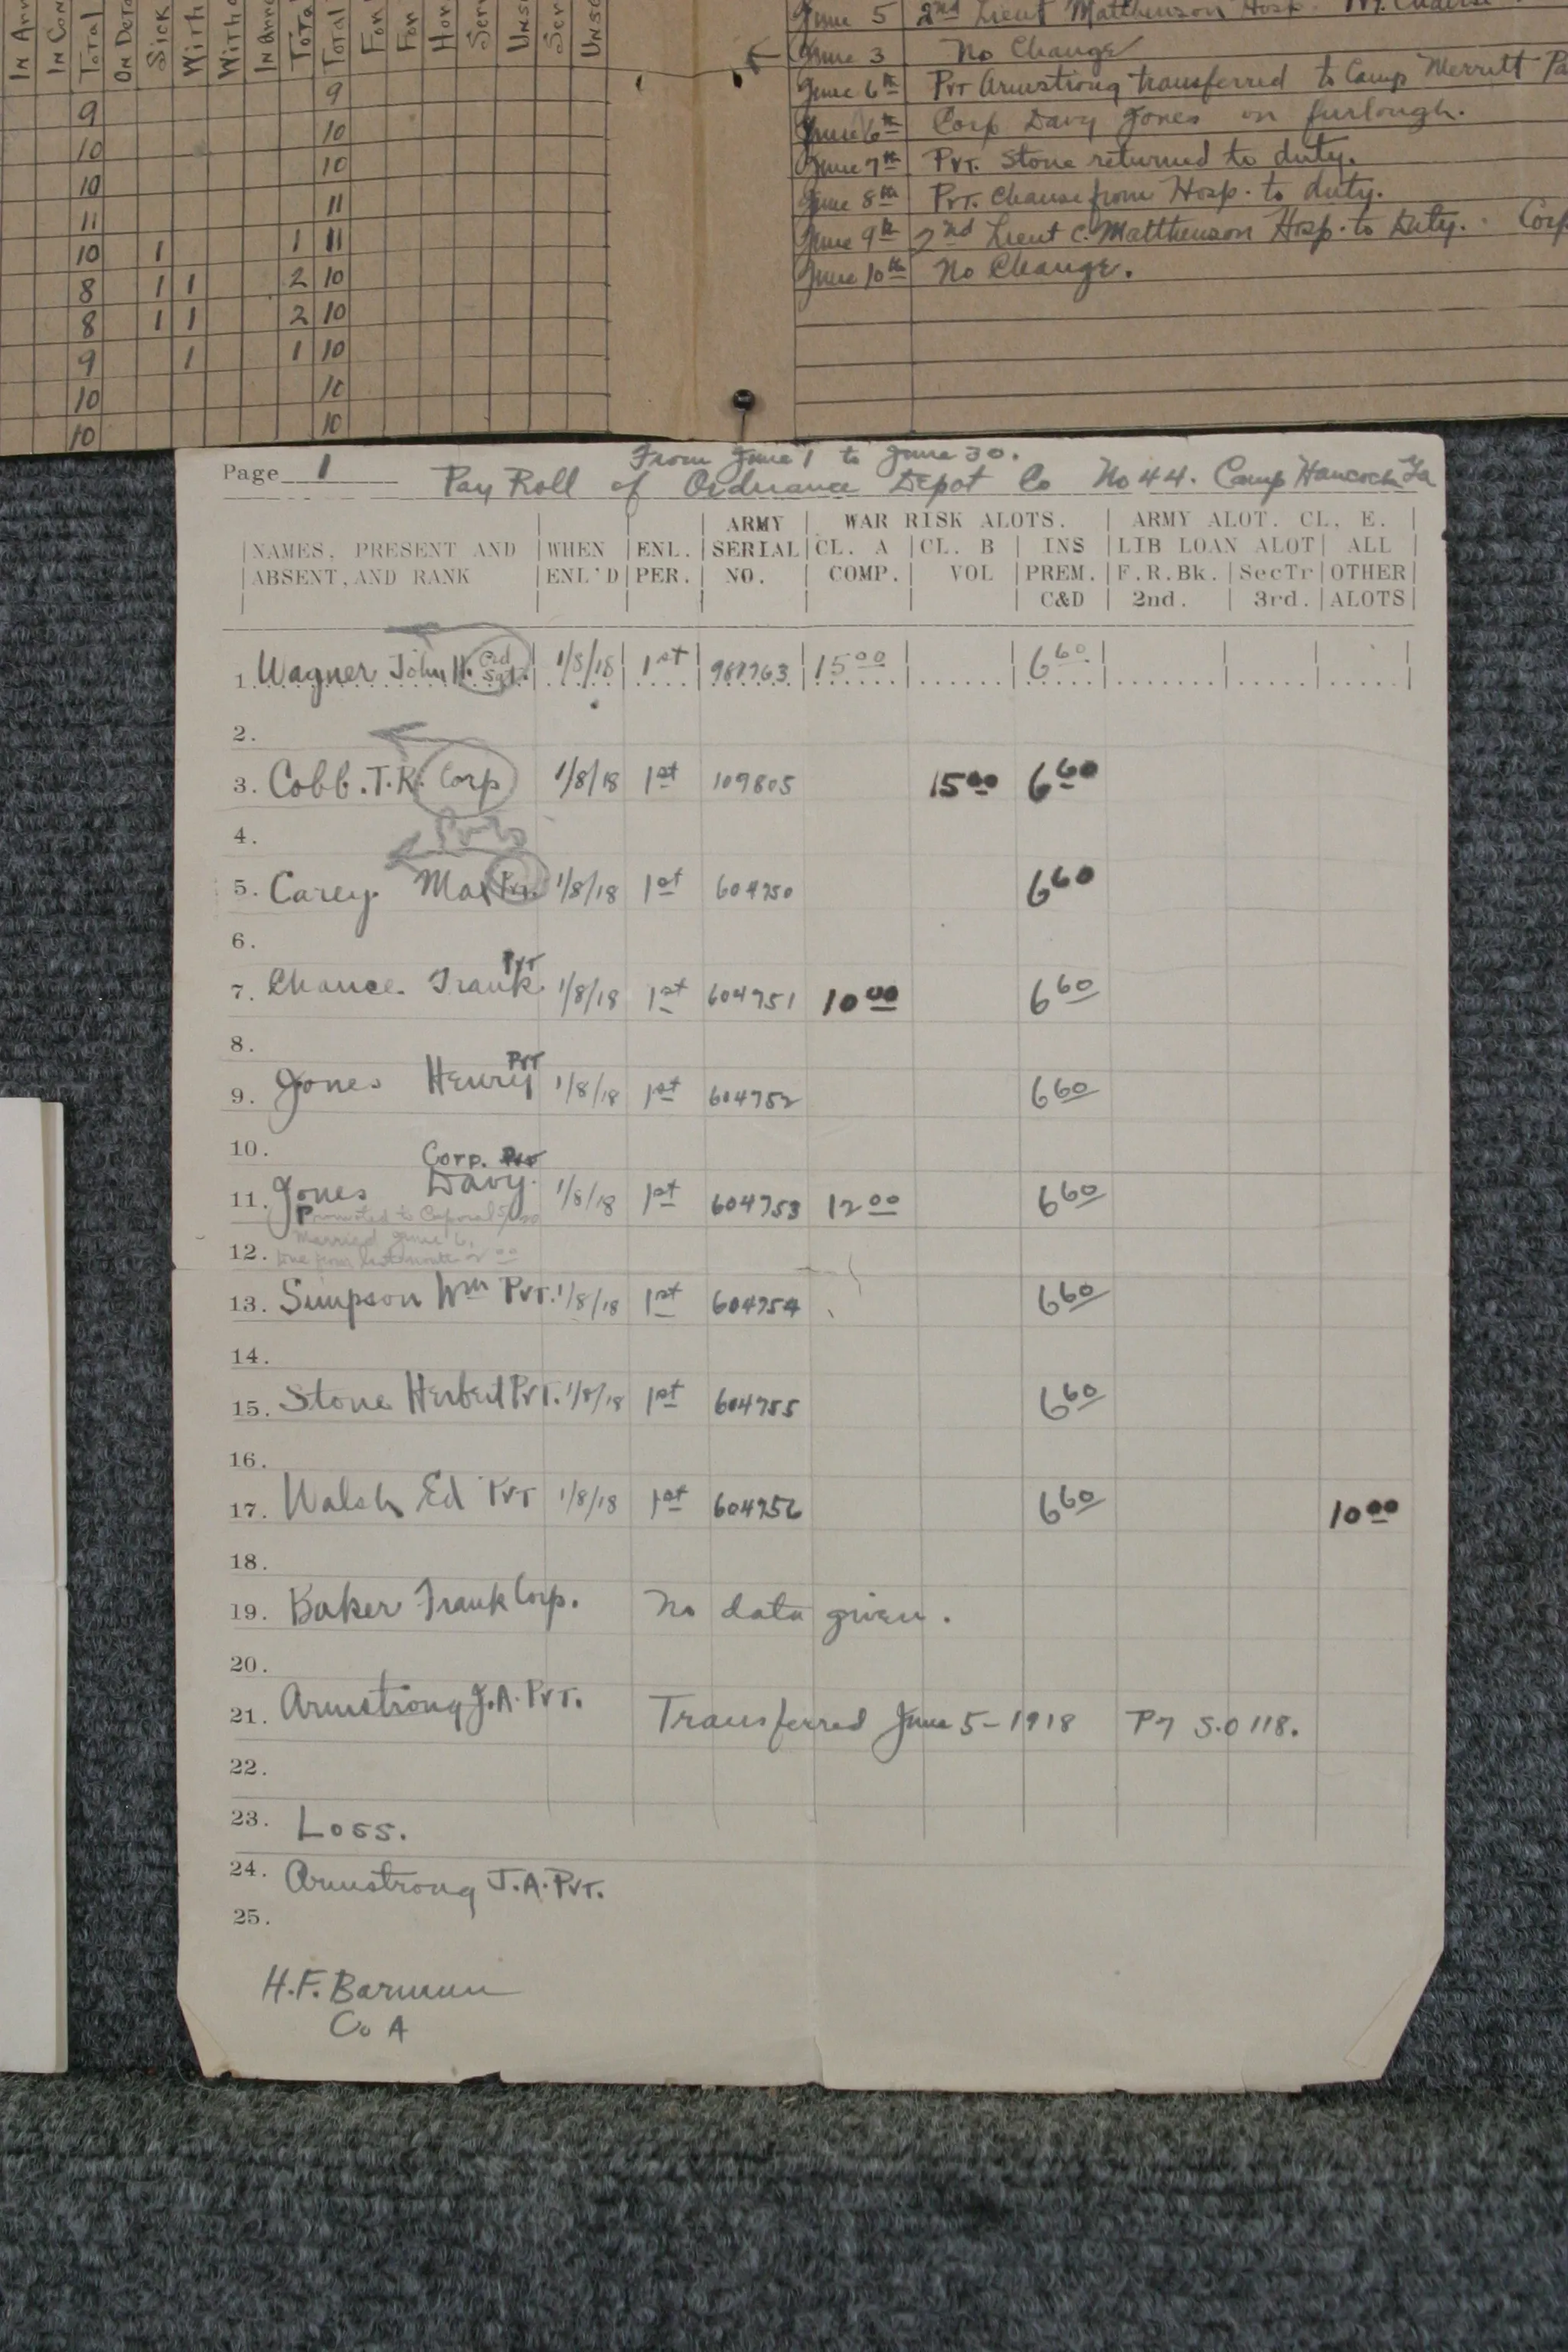 In Arr
In Con
Total
On Deta
Sick
With
In Arre
Total
Total
For
For
Hon
Ser
Unse
Ser
Unse
9 9
10 10
10 10
11 11
10 1 1 11
8 1 1 2 10
8 1 1 2 10
9 1 1 10
10 10
10 10
June 5 2nd Lieut Matthewson Hosp.
June 3 No Change
June 6th Pvt Armstrong transferred to Camp Merritt
June 6th Corp Davy Jones on furlough.
June 7th Pvt. Stone returned to duty.
June 8th Pvt. Chance from Hosp. to duty.
June 9th 2nd Lieut C. Matthewson Hosp. to Duty. Corp
June 10th No Change.
From June 1 to June 30.
Page 1 Pay Roll of Ordnance Depot Co No 44. Camp Hancock Ga
ARMY WAR RISK ALOTS. ARMY ALOT. CL, E.
NAMES, PRESENT AND WHEN ENL. SERIAL CL. A CL. B INS LIB LOAN ALOT ALL
ABSENT, AND RANK ENL'D PER. NO. COMP. VOL PREM. F.R.Bk. SecTr OTHER
C&D 2nd. 3rd. ALOTS
1. Wagner John H. Ord Sgt. 1/8/18 1st 981763 15 00 6 60
2.
3. Cobb. T.R. Corp 1/8/18 1st 109805 15 00 6 60
4. Pvts
5. Carey. Max Pvt. 1/8/18 1st 604750 6 60
6.
7. Chance. Frank Pvt 1/8/18 1st 604751 10 00 6 60
8.
9. Jones Henry Pvt 1/8/18 1st 604752 6 60
10. Corp. Pvt
11. Jones Davy. 1/8/18 1st 604753 12 00 6 60
Promoted to Corporal
Married June 6,
12. Due from last month
13. Simpson Wm Pvt. 1/8/18 1st 604754 6 60
14.
15. Stone Herbert Pvt. 1/8/18 1st 604755 6 60
16.
17. Walsh Ed Pvt 1/8/18 1st 604756 6 60 10 00
18.
19. Baker Frank Corp. No data given.
20.
21. Armstrong J.A. Pvt. Transferred June 5-1918 P7 S.O 118.
22.
23. Loss.
24. Armstrong J.A. Pvt.
25.
H.F. Barmun
Co A